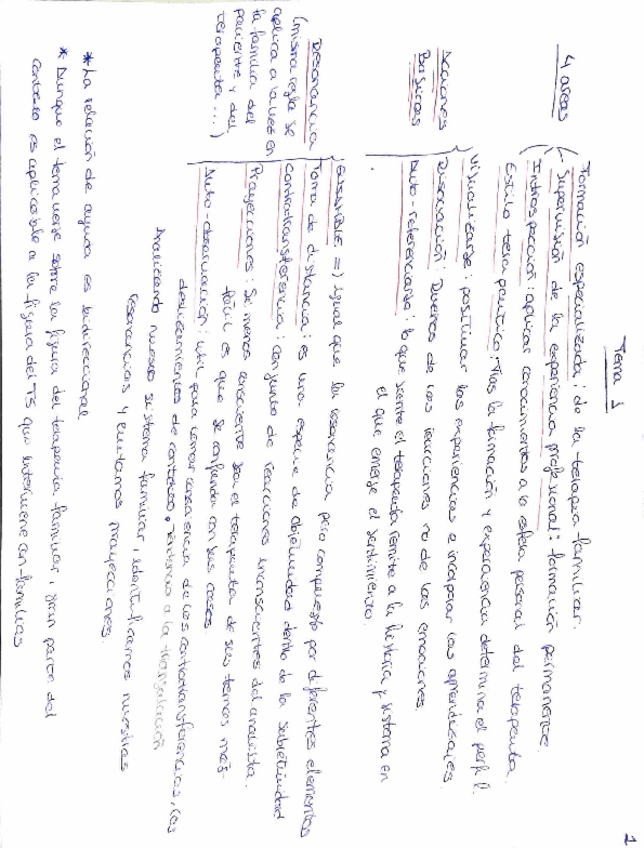 1
Tema 1
4 areas
Formación especializada: de la terapia familiar.
Supervisión de la experiencia profesional: formación permanente.
Introspección: aplicar conocimientos a la esfera personal del terapeuta.
Estilo terapéutico: Tras la formación y experiencia determina el perfil.
Acciones Básicas
Visualizarse: positivar las experiencias e incorporar los aprendizajes.
Disociación: Dueños de las reacciones no de las emociones.
Auto-referenciarse: lo que siente el terapeuta remite a la historia y sistema en
el que emerge el sentimiento.
Resonancia
(misma regla se
aplica a la vez en
la familia del
paciente y del
terapeuta...)
=> igual que la resonancia pero compuesto por diferentes elementos
Toma de distancia: es una especie de objetividad dentro de la subjetividad
Contratransferencia: conjunto de reacciones inconscientes del analista.
Proyecciones: Se menos consciente sea el terapeuta de sus temas más
fácil es que se confunda con sus cosas.
Auto-observación: útil para tomar consciencia de las contratransferencias, los
deslizamientos de contexto, tendencia a la
Analizando nuestro sistema familiar, identificamos nuestras
resonancias y evitamos proyecciones.
* La relación de ayuda es bidireccional
* Aunque el tema verse sobre la figura del terapeuta familiar, gran parte del
contenido es aplicable a la figura del TS que interviene con familias